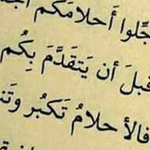 جّلوا أحلامكم
قبلَ أن يَتقدَّمَ بِكُم
فالأحلامُ تَكبُر وَتَ